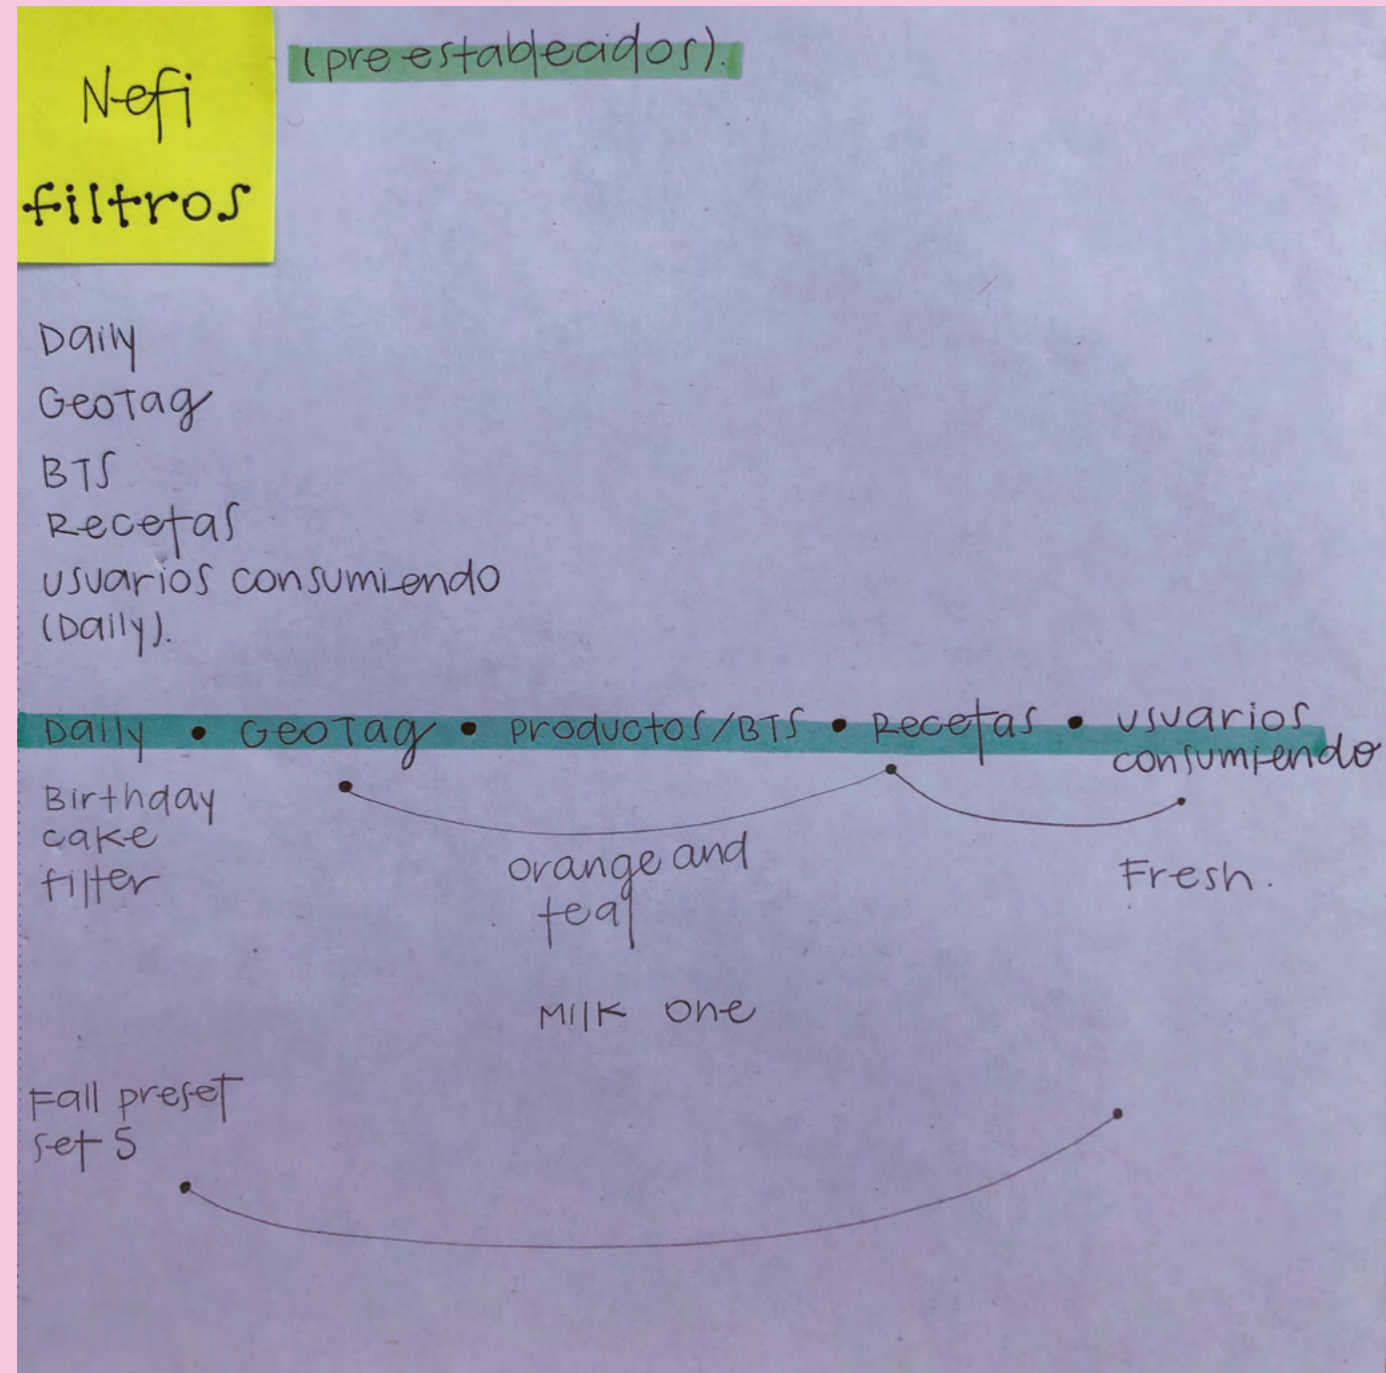 Nefi
filtros
(preestablecidos).
Daily
GeoTag
BTS
Recetas
usuarios consumiendo
(Daily).
Daily • GeoTag • productos/BTS • Recetas • usuarios
consumiendo
Birthday
cake
filter
orange and
teal
Fresh.
Milk one
Fall preset
set 5